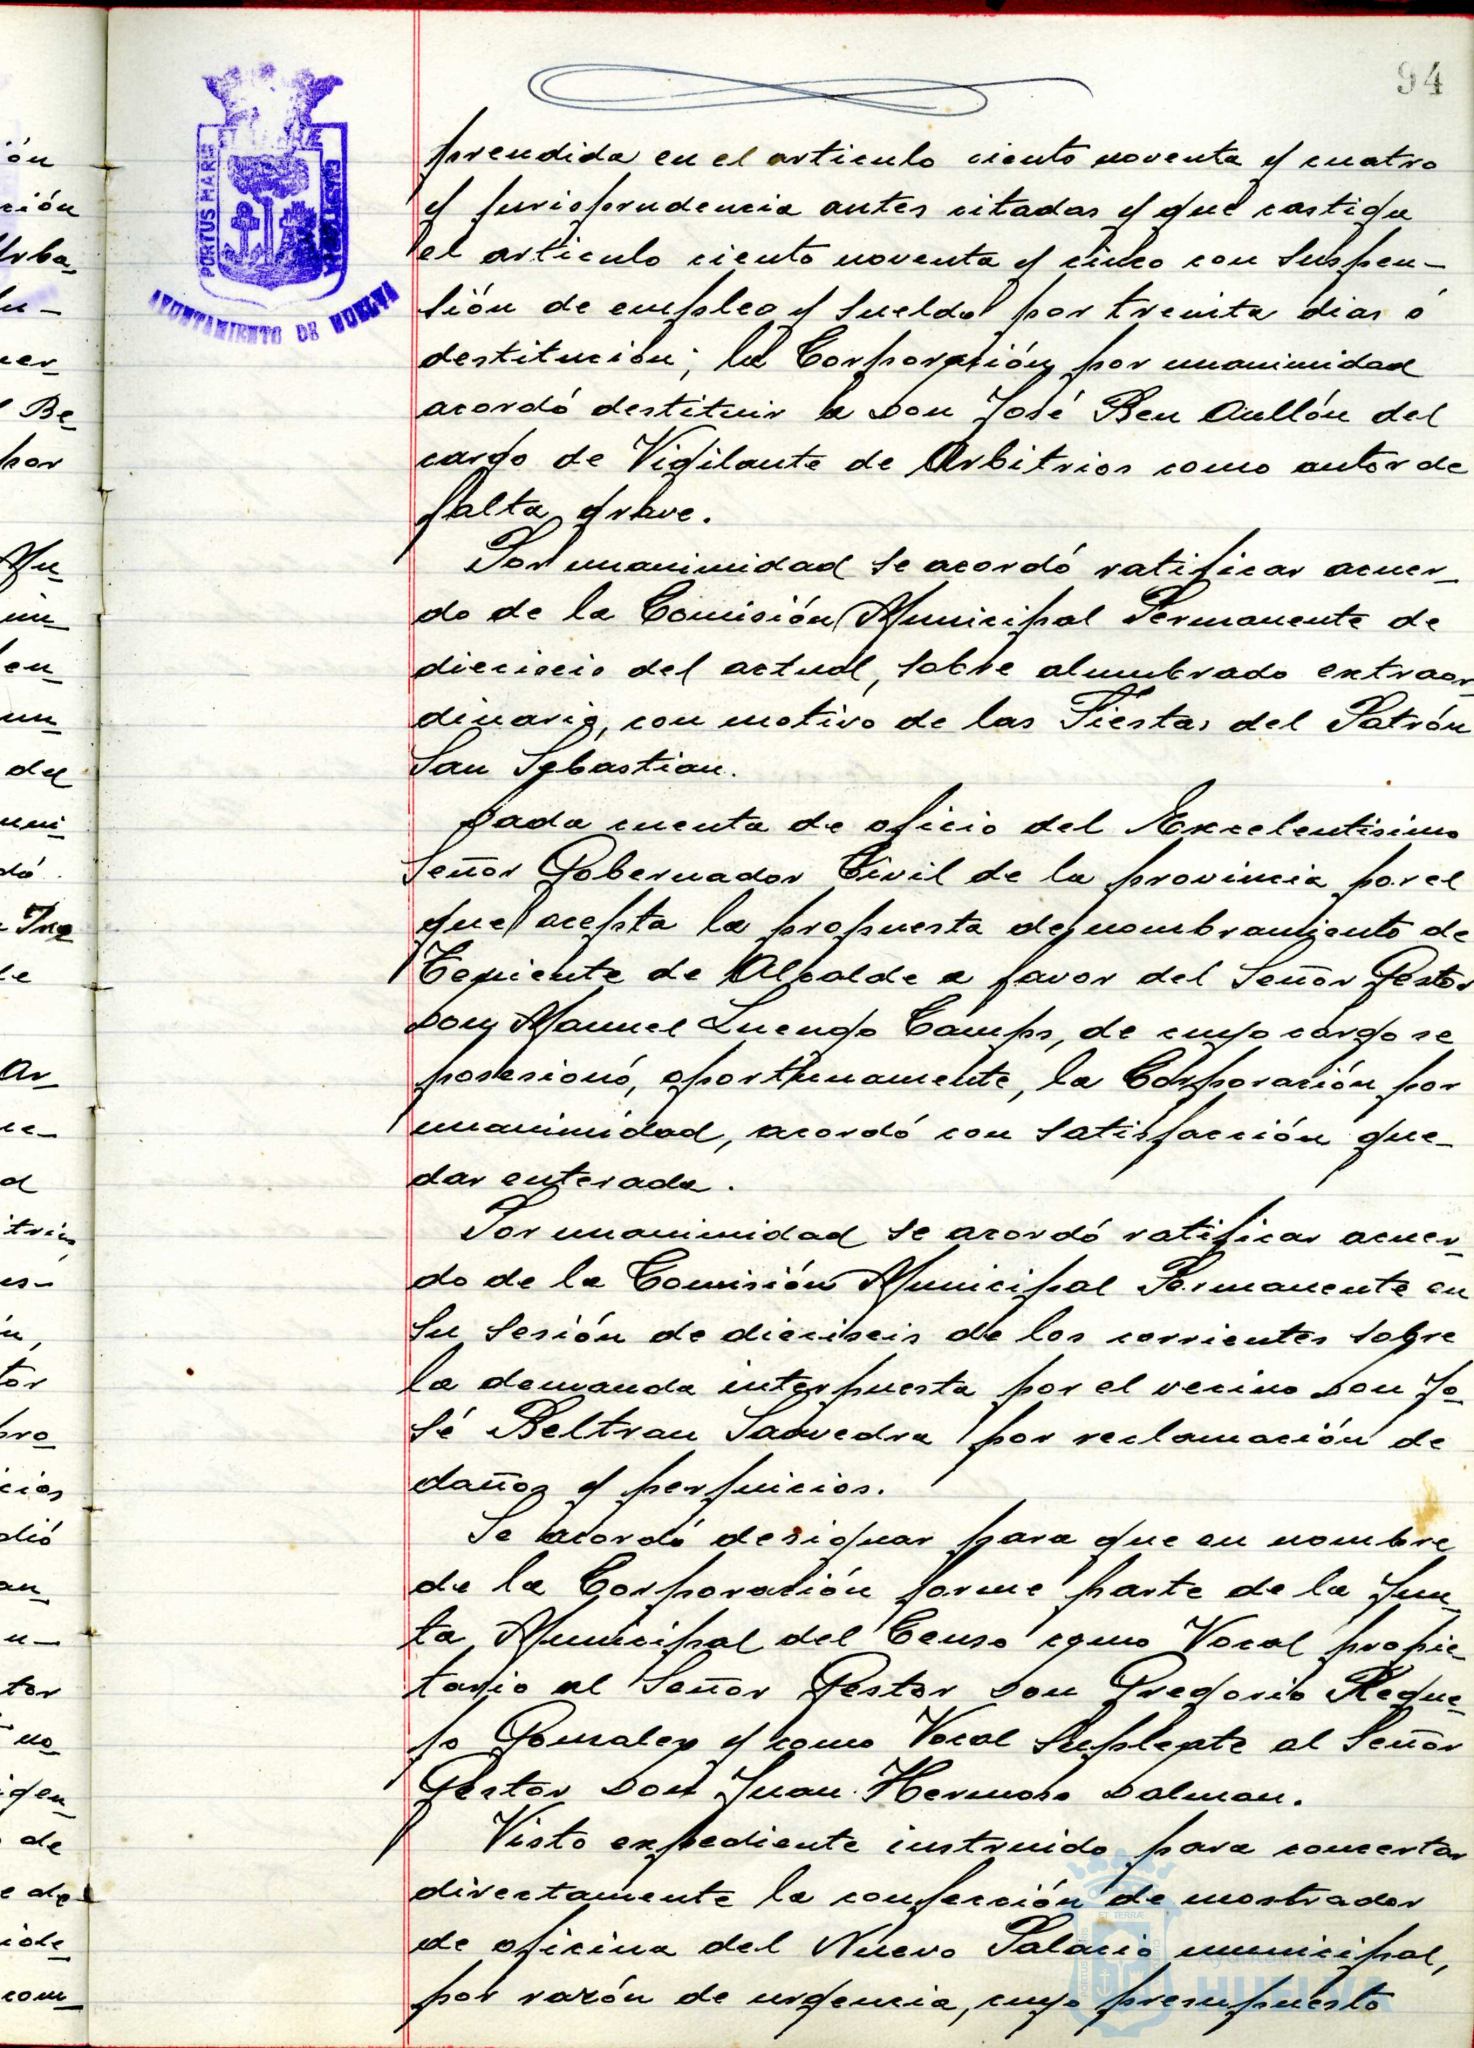 94
PORTUS MARIS
AYUNTAMIENTO DE HUELVA
prendida en el articulo ciento noventa y cuatro
y jurisprudencia antes citadas y que castiga
el articulo ciento noventa y cinco con suspen-
sión de empleo y sueldo por treinta dias ó
destitución; la Corporación por unanimidad
acordó destituir a Don José Ben Aullón del
cargo de Vigilante de Arbitrios como autor de
falta grave.
Por unanimidad se acordó ratificar acuer-
do de la Comisión Municipal Permanente de
dieciseis del actual, sobre alumbrado extraor-
dinario, con motivo de las Fiestas del Patrón
San Sebastian.
Dada cuenta de oficio del Excelentisimo
Señor Gobernador Civil de la provincia por el
que acepta la propuesta de nombramiento de
Teniente de Alcalde a favor del Señor Gestor
Don Manuel Luengo Camps, de cuyo cargo se
posesionó, oportunamente, la Corporación por
unanimidad, acordó con satisfacción que-
dar enterada.
Por unanimidad se acordó ratificar acuer-
do de la Comisión Municipal Permanente en
su sesión de dieciseis de los corrientes sobre
la demanda interpuesta por el vecino Don Jo-
sé Beltran Saavedra por reclamación de
daños y perjuicios.
Se acordó designar para que en nombre
de la Corporación forme parte de la Jun-
ta Municipal del Censo como Vocal propie-
tario al Señor Gestor Don Gregorio Reque-
jo Gonzalez y como Vocal Suplente al Señor
Gestor Don Juan Hermoso Dalman.
Visto expediente instruido para concertar
directamente la confección de mostrador
de oficina del Nuevo Palacio municipal,
por razón de urgencia, cuyo presupuesto
HUELVA